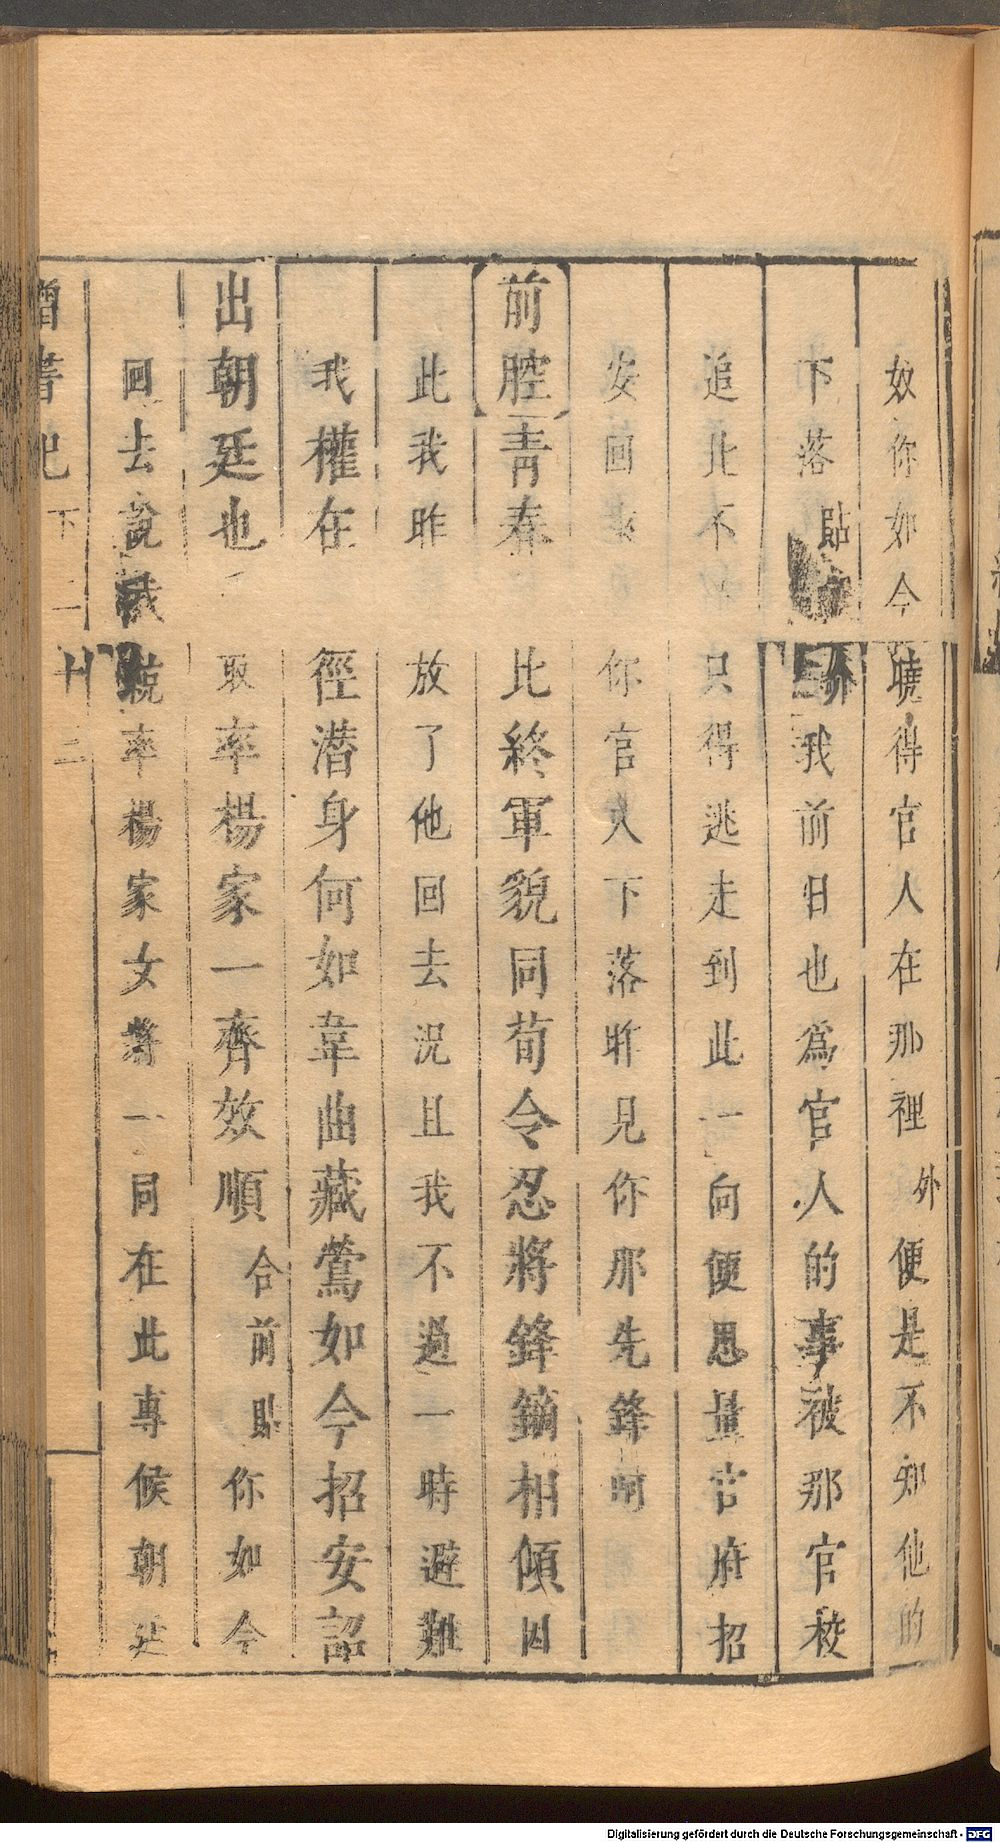 奴你如今曉得官人在那裡外便是不知他的
下落貼外我前日也爲官人的事被那官校
追此不只得逃走到此一向便思量官府招
安回你官人下落昨見你那先鋒呵
前腔青春比終軍貌同荀令忍將鋒鏑相傾因
此我昨放了他回去況且我不過一時避難
我權在徑潛身何如韋曲藏鶯如今招安詔
出朝廷也取率楊家一齊效順合前貼你如今
回去說我就率楊家女將一同在此專候朝廷
下二十二
Digitalisierung gefördert durch die Deutsche Forschungsgemeinschaft - DFG